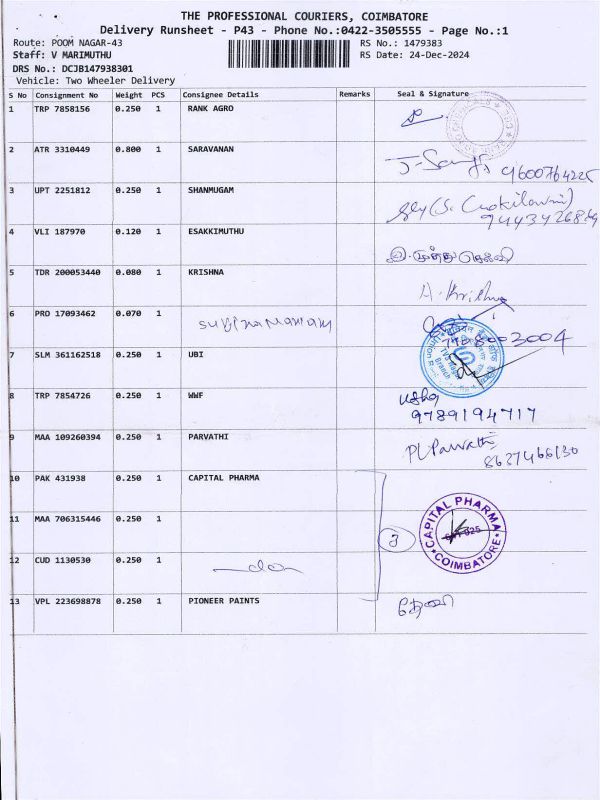 THE PROFESSIONAL COURIERS, COIMBATORE
Delivery Runsheet - P43 - Phone No.:0422-3505555 - Page No.:1
Route: POOM NAGAR-43 RS No.: 1479383
Staff: V MARIMUTHU RS Date: 24-Dec-2024
DRS No.: DCJB147938301
Vehicle: Two Wheeler Delivery
S No Consignment No Weight PCS Consignee Details Remarks Seal & Signature
1 TRP 7858156 0.250 1 RANK AGRO
2 ATR 3310449 0.800 1 SARAVANAN
9600764225
3 UPT 2251812 0.250 1 SHANMUGAM
4 VLI 187970 0.120 1 ESAKKIMUTHU
5 TDR 200053440 0.080 1 KRISHNA
A. Krishna
6 PRO 17093462 0.070 1
7 SLM 361162518 0.250 1 UBI
8 TRP 7854726 0.250 1 WWF
usha
9789194717
9 MAA 109260394 0.250 1 PARVATHI
PL Parvathi
8637466130
10 PAK 431938 0.250 1 CAPITAL PHARMA
CAPITAL PHARMA
COIMBATORE
11 MAA 706315446 0.250 1
3
12 CUD 1130530 0.250 1 do
13 VPL 223698878 0.250 1 PIONEER PAINTS
தேவி